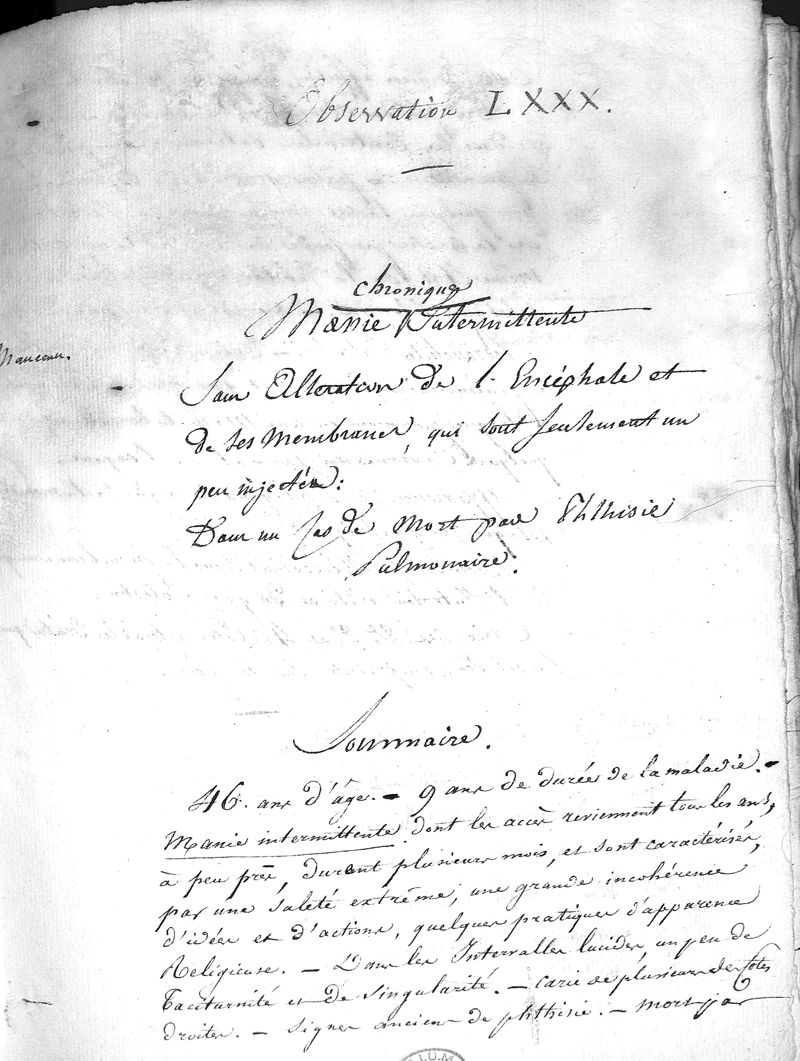 Observation LXXX.
chronique
Manie Intermittente
Manceau.
Sans Alteration de l'Encéphale et
de ses Membranes, qui sont seulement un
peu injectés:
Dans un Cas de Mort par Phthisie
Pulmonaire.
Sommaire.
46. ans d'âge. - 9 ans de durée de la maladie. -
Manie intermittente dont les accès reviennent tous les ans,
à peu près, durant plusieurs mois, et sont caractérisés,
par une saleté extrême, une grande incohérence
d'idées et d'actions, quelques pratiques d'apparence
Religieuse. - Dans les Intervalles lucides, un peu de
Taciturnité et de singularité. - carie de plusieurs des côtes
droites. - signes anciens de phthisie. - mort par